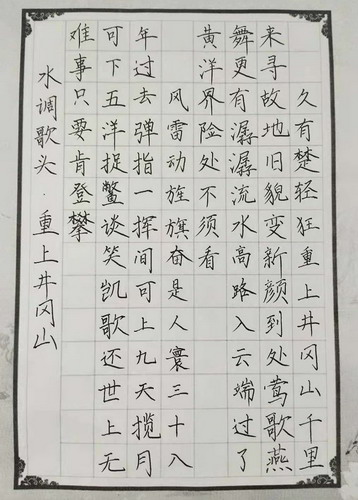 久有楚轻狂重上井冈山千里
来寻故地旧貌变新颜到处莺歌燕
舞更有潺潺流水高路入云端过了
黄洋界险处不须看
风雷动旌旗奋是人寰三十八
年过去弹指一挥间可上九天揽月
可下五洋捉鳖谈笑凯歌还世上无
难事只要肯登攀
水调歌头·重上井冈山